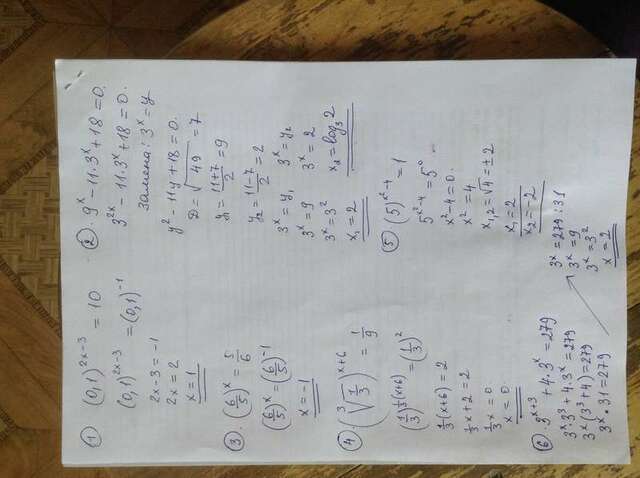 ① (0,1)^{2x-3} = 10
(0,1)^{2x-3} = (0,1)^{-1}
2x-3 = -1
2x = 2
x = 1
② 9^x - 11·3^x + 18 = 0.
3^{2x} - 11·3^x + 18 = 0.
Замена: 3^x = y
y² - 11y + 18 = 0.
D = √49 = 7
y₁ = \frac{11+7}{2} = 9
y₂ = \frac{11-7}{2} = 2
3^x = y₁ 3^x = y₂
3^x = 9 3^x = 2
3^x = 3² x₂ = log₃2
x₁ = 2
③ (\frac{6}{5})^x = \frac{5}{6}
(\frac{6}{5})^x = (\frac{6}{5})^{-1}
x = -1
④ (\sqrt[3]{\frac{1}{3}})^{x+6} = \frac{1}{9}
(\frac{1}{3})^{\frac{1}{3}(x+6)} = (\frac{1}{3})^2
\frac{1}{3}(x+6) = 2
\frac{1}{3}x + 2 = 2
\frac{1}{3}x = 0
x = 0
⑤ (5)^{x²-4} = 1
5^{x²-4} = 5⁰
x² - 4 = 0.
x² = 4
x₁,₂ = √4 = ±2
x₁ = 2
x₂ = -2
⑥ 3^{x+3} + 4·3^x = 279
3^x·3³ + 4·3^x = 279
3^x(3³ + 4) = 279
3^x · 31 = 279
3^x = 279 : 31
3^x = 9
3^x = 3²
x = 2